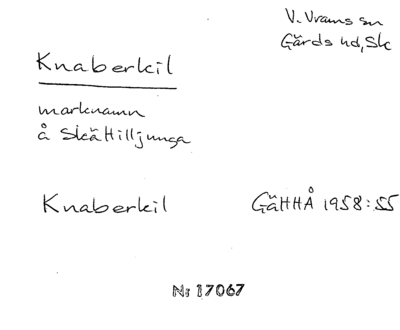 V. Vrams sn
Gärds hd, Sk
Knaberkil
marknamn
å Skättilljunga
Knaberkil GäHHÅ 1958:55
N: 17067